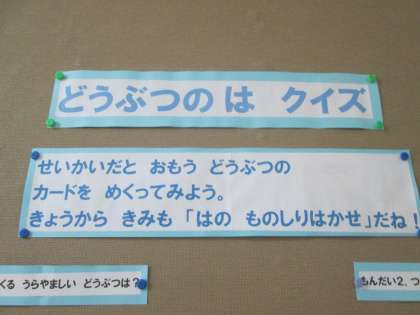 どうぶつの は クイズ
せいかいだと おもう どうぶつの
カードを めくってみよう。
きょうから きみも 「はの ものしりはかせ」だね！
くる うらやましい どうぶつは？
もんだい2. つ